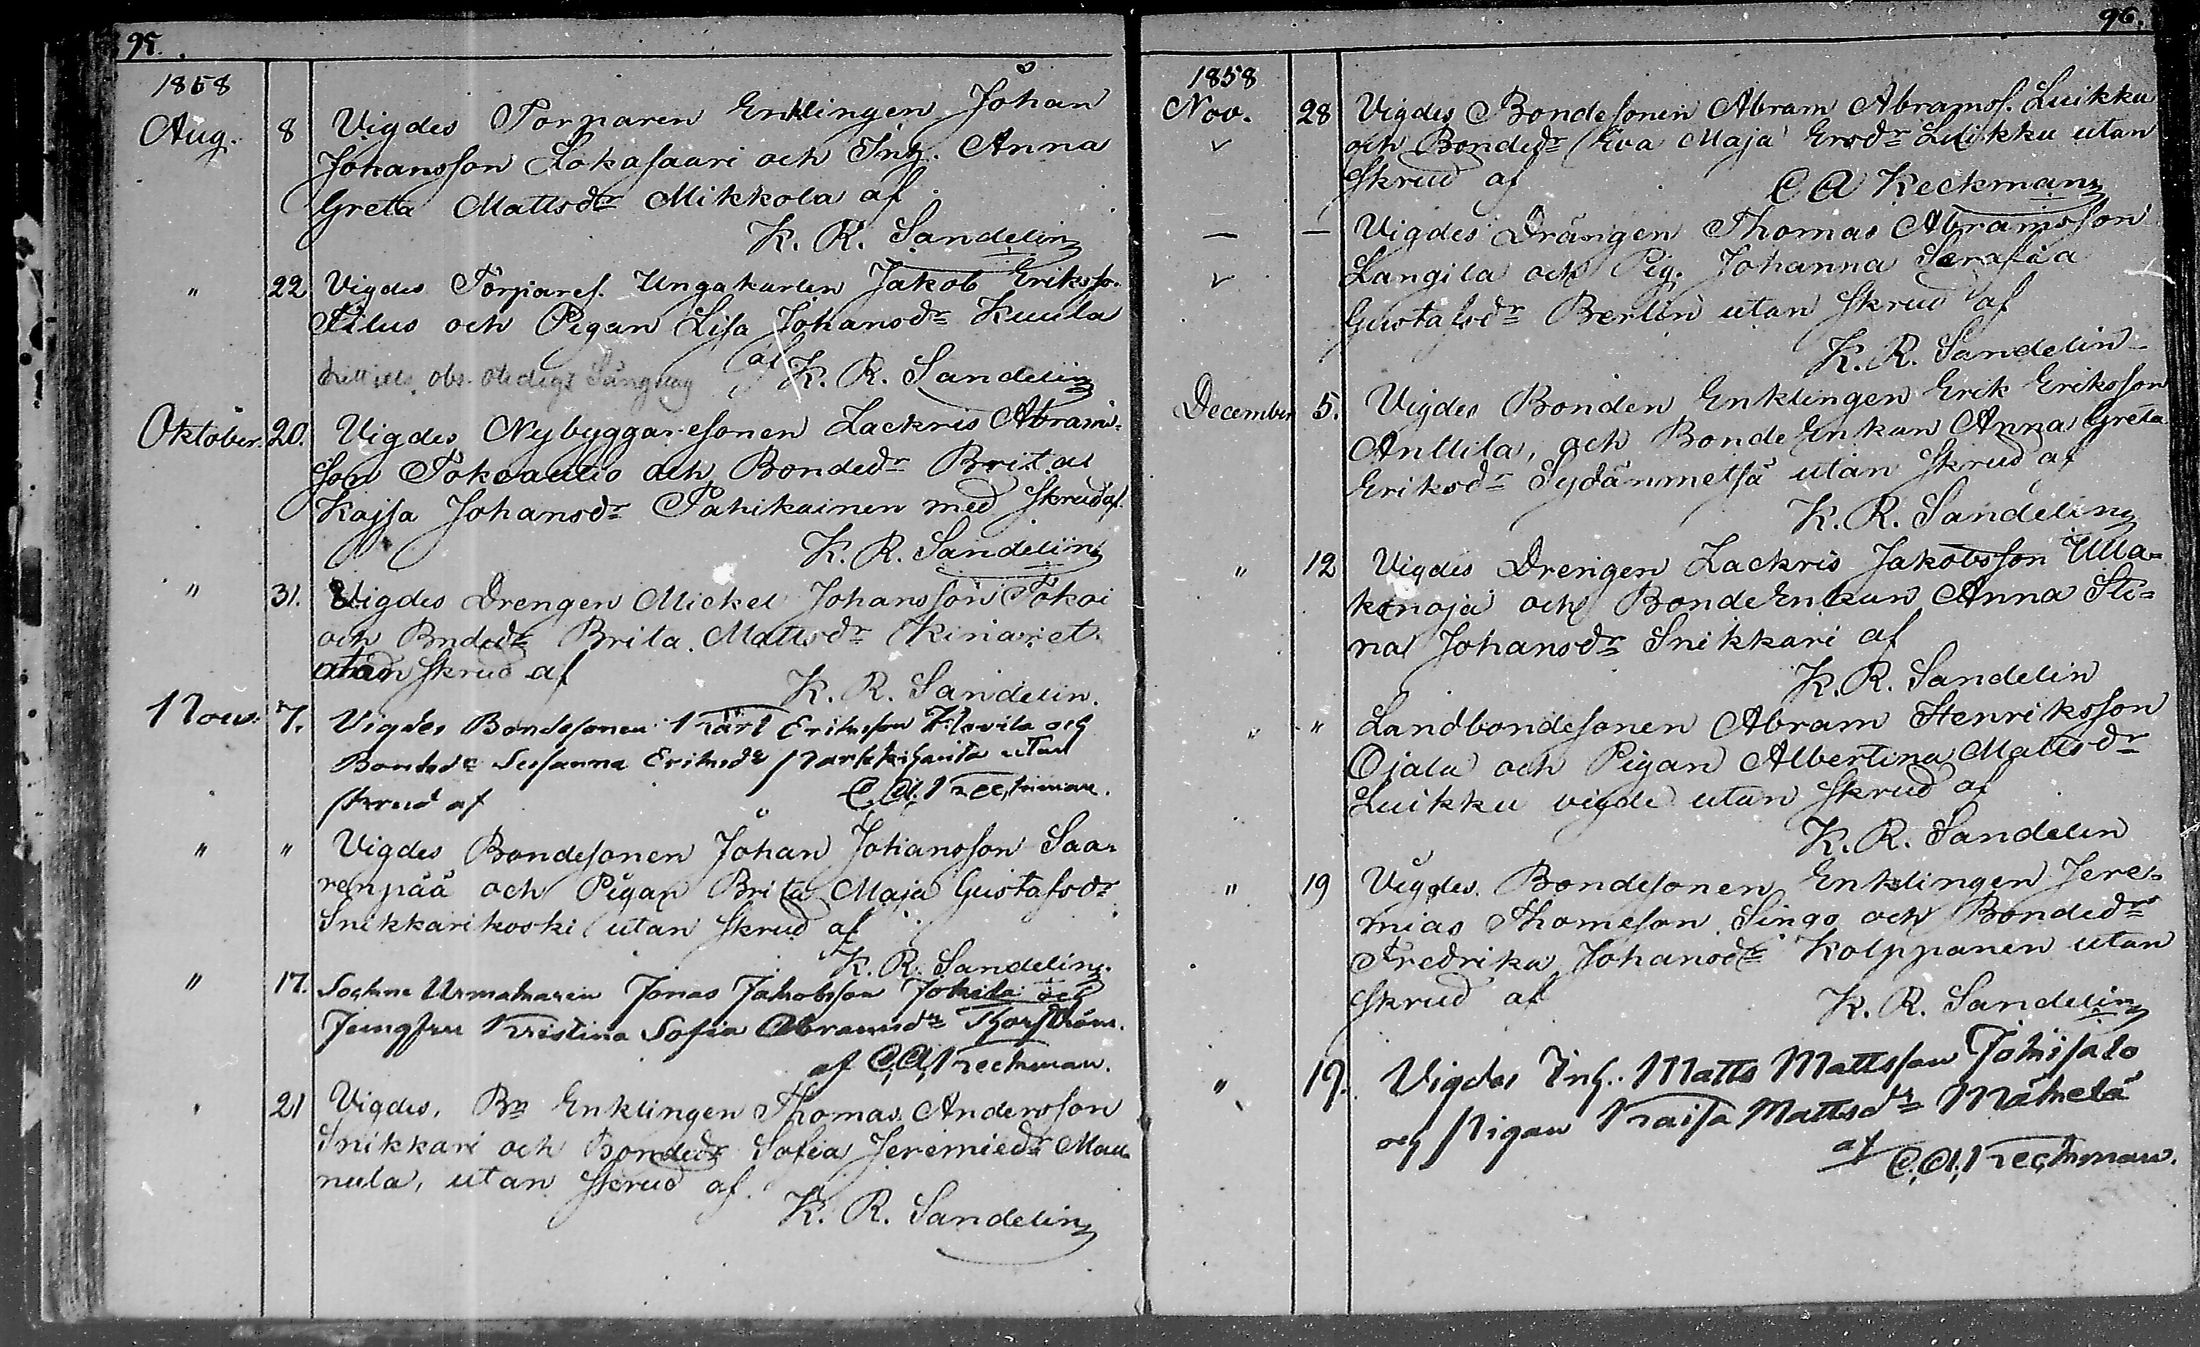 95.
1858
Aug. 8 Vigdes Torparen Enklingen Johan
Johansson Lokasaari och Inh. Anna
Greta Mattsdr Mikkola af
K. R. Sandelin
" 22 Vigdes Torpares. Ungakarlen Jakob Erikss.
Filus och Pigan Lisa Johansdr Kuula
af K. R. Sandelin
obs.
Oktober. 20. Vigdes Nybyggaresonen Zackris Abram-
son Tokoautio och Bondedr Brita
Kajsa Johansdr Pahikainen med Skrud af
K. R. Sandelin
" 31. Vigdes Drengen Mickel Johansson Tokoi
och Bndedr Brita Mattsdr Kinaret
utan Skrud af
K. R. Sandelin.
Nov. 7. Vigdes Bondesonen Karl Eriksson och
Bondedr Susanna Eriksdr utan
skrud af C. A. Keckman.
" " Vigdes Bondesonen Johan Johansson Saa-
renpää och Pigan Brita Maja Gustafsdr
Snikkarikoski utan Skrud af
K. R. Sandelin.
" 17. Sockne Urmakaren Jonas Jakobsson Jokela och
Jungfru Kristina Sofia Abramsdr
af C. A. Keckman.
21 Vigdes. Bn Enklingen Thomas Andersson
Snikkari och Bondedr Sofia Jeremiedr Mau-
nula, utan Skrud af.
K. R. Sandelin
96.
1858
Nov. 28 Vigdes Bondesonen Abram Abramss. Luikku
och Bondedr Eva Maja Ersdr Luikku utan
Skrud af C A Keckman
— — Vigdes Drängen Thomas Abramsson
Langila och Pig. Johanna Serafia
Gustafsdr Berlin utan Skrud af
K. R. Sandelin
December 5. Vigdes Bonden Enklingen Erik Eriksson
Anttila, och Bonde Enkan Anna Greta
Eriksdr Sydänmetsä utan Skrud af
K. R. Sandelin
" 12 Vigdes Drengen Zackris Jakobsson Ulla-
konoja och Bonde Enkan Anna Sti-
na Johansdr Snikkari af
K. R. Sandelin
" " Landbondesonen Abram Henriksson
Ojala och Pigan Albertina Mattsdr
Luikku vigde utan Skrud af
K. R. Sandelin
" 19 Vigdes. Bondesonen Enklingen Jere-
mias Thomeson Singo och Bondedr
Fredrika Johansdr Kolppanen utan
Skrud af K. R. Sandelin
" 19. Vigdes Inh. Matts Mattsson Jokisalo
och Pigan Kaisa Mattsdr Mäkelä
af C. A. Keckman.